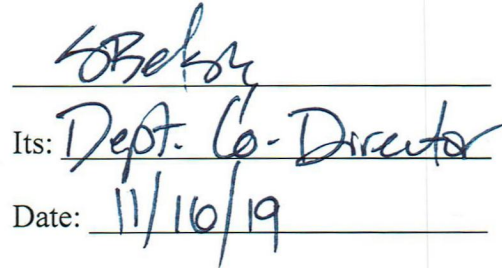 Its: Dept. Co-Director
Date: 11/16/19